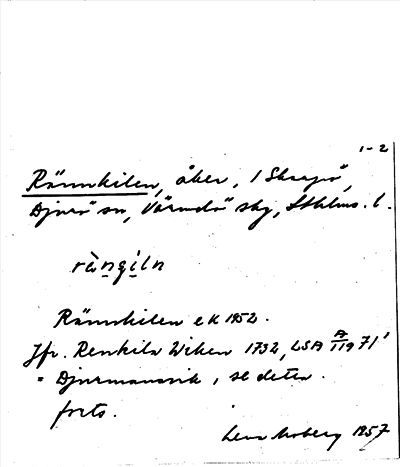 1-2
Rännkilen, åker, 1 Skarpö,
Djurö sn, Värmdö skg, Sthlms. l.
ràngiln
Rännkilen ek 1952.
Jfr. Renkila Wiken 1732, LSA A 119 71'
= Djurmansvik, se detta.
forts.
Lena Moberg 1957